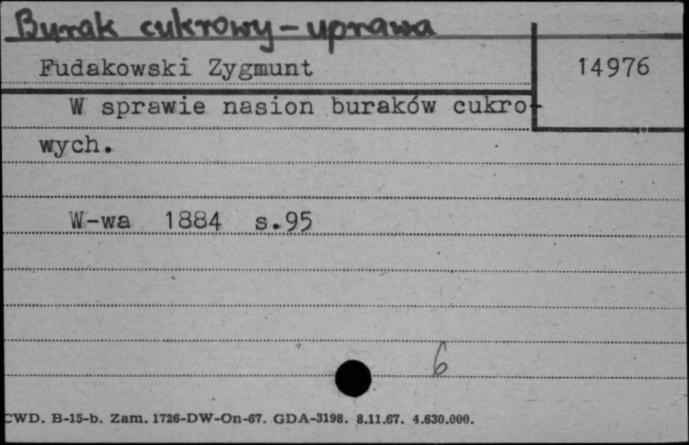 Burak cukrowy - uprawa
Fudakowski Zygmunt
14976
W sprawie nasion buraków cukro-
wych.
W-wa 1884 s.95
6
CWD. B-15-b. Zam. 1726-DW-On-67. GDA-3198. 8.11.67. 4.630.000.